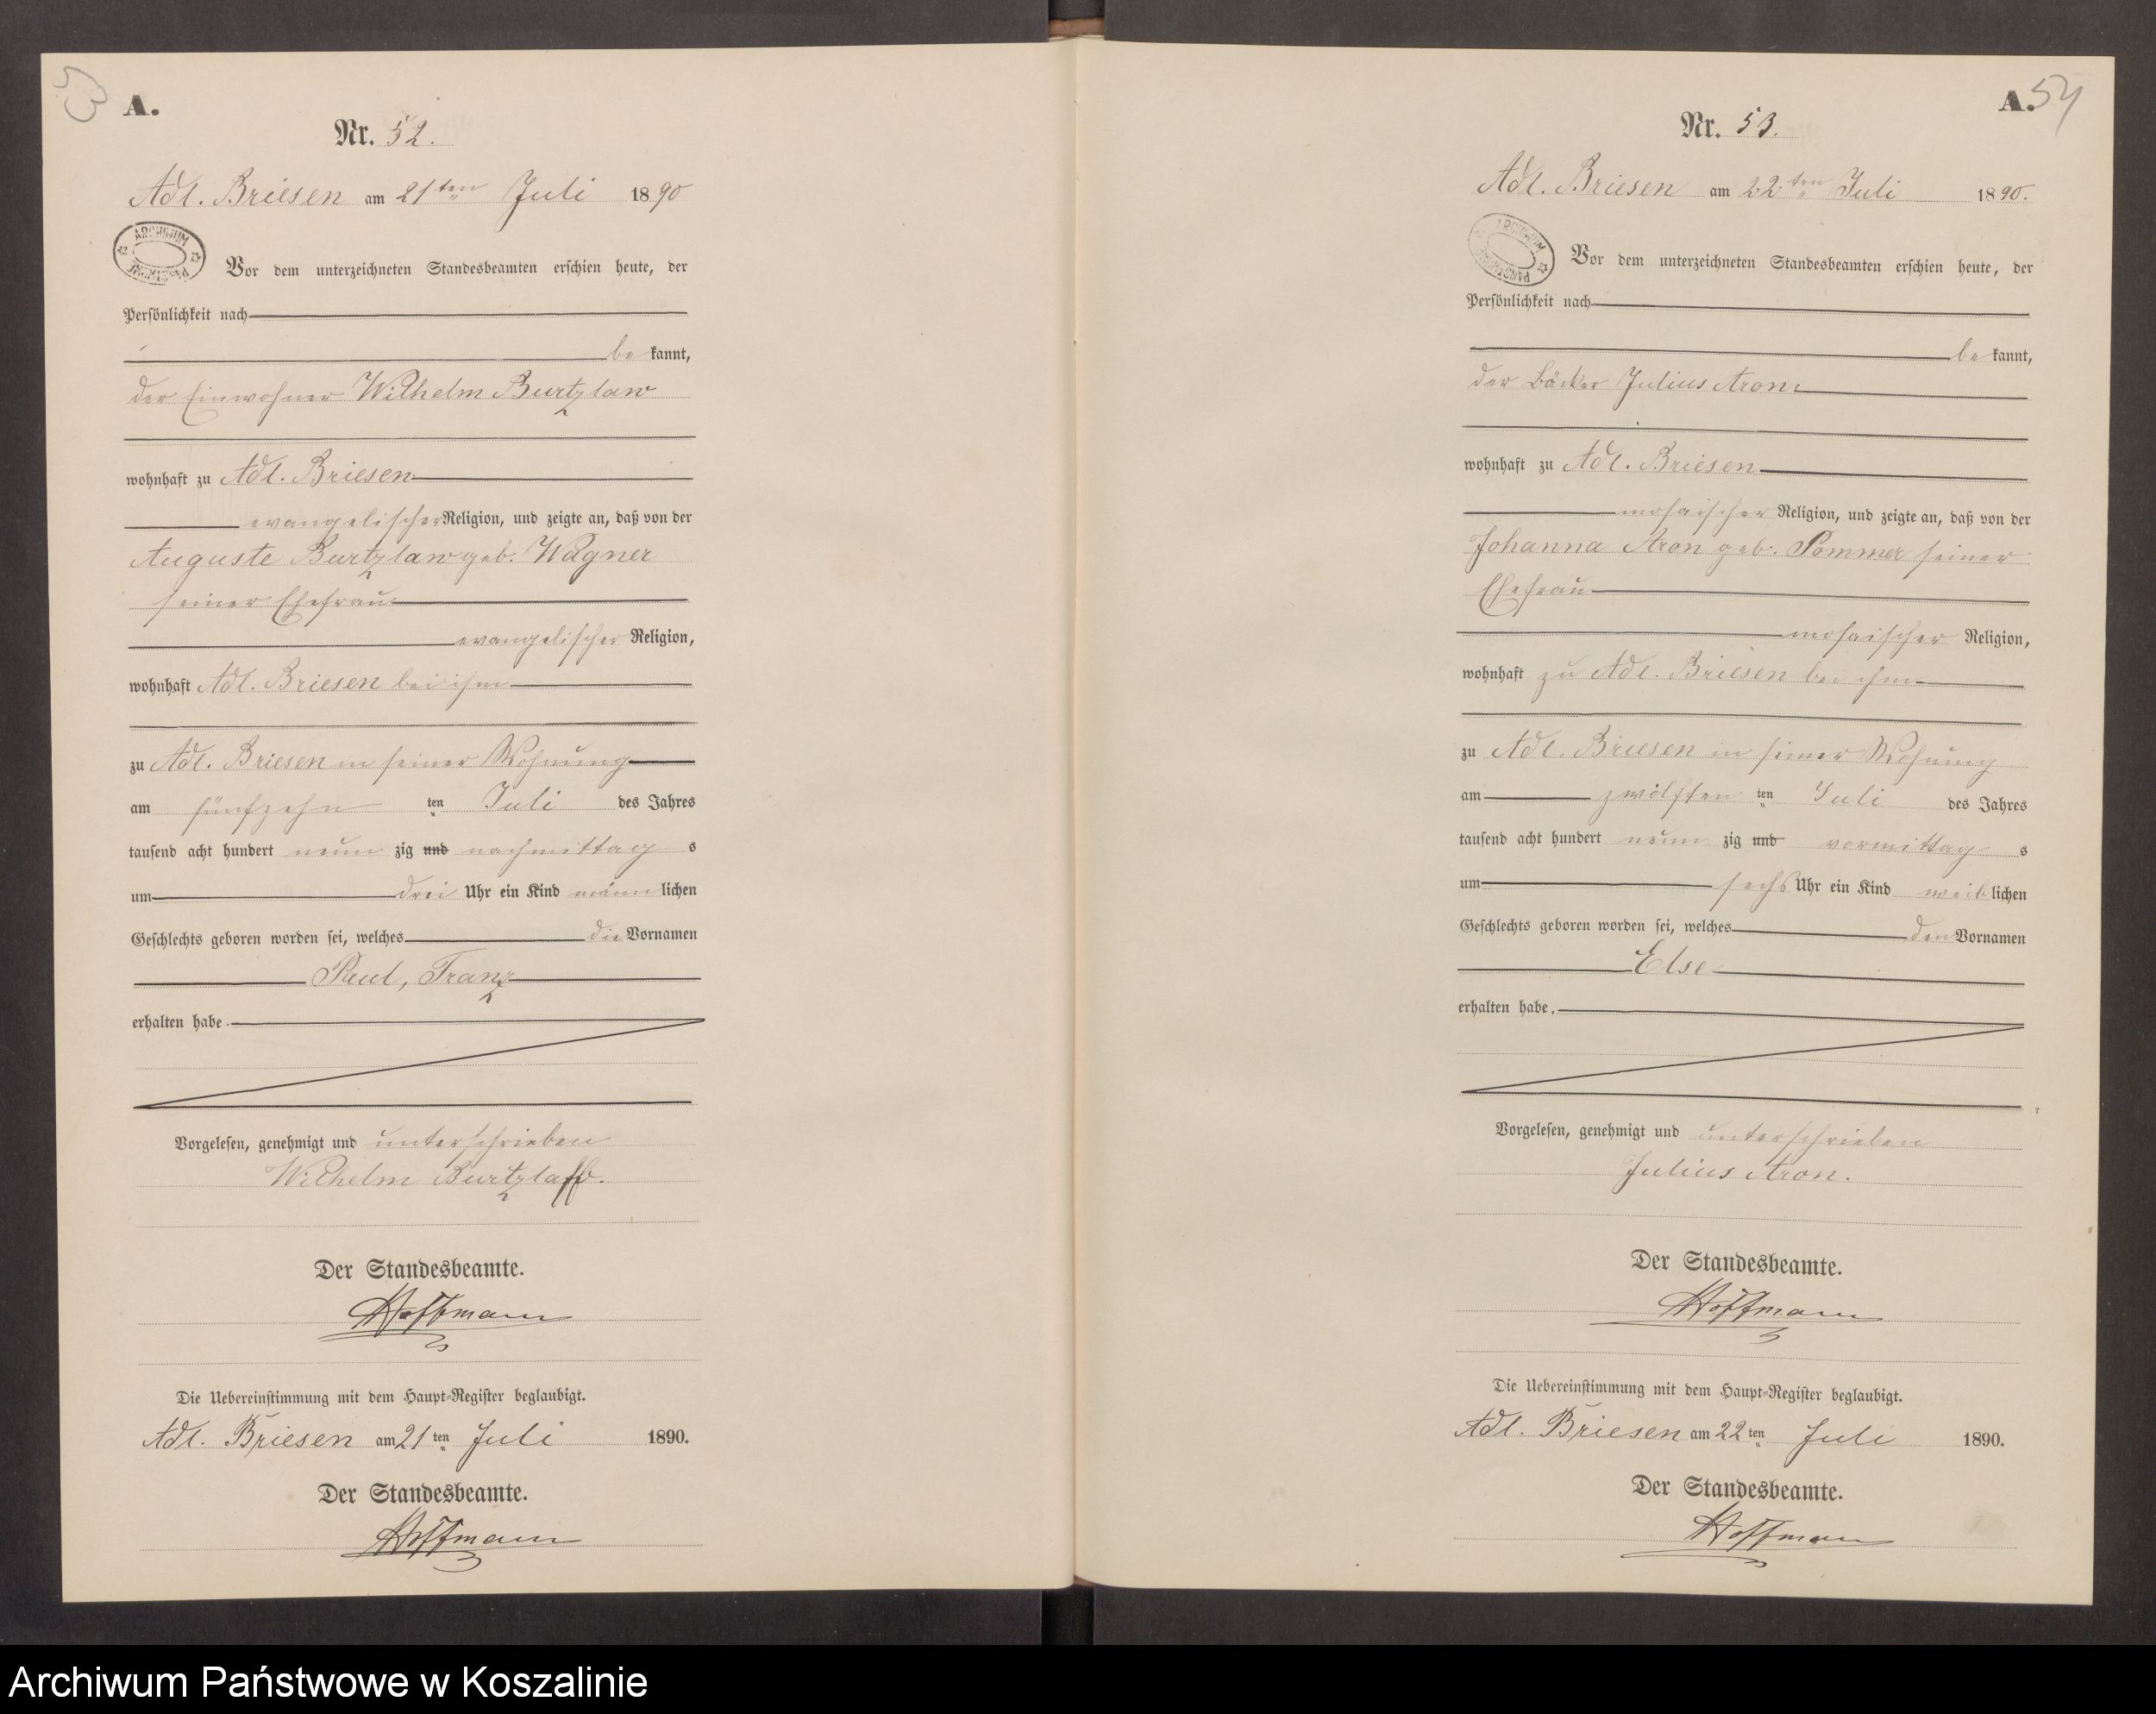 53
A.
Nr. 52.
Adl. Briesen am 21ten Juli 1890
ARCHIWUM
Vor dem unterzeichneten Standesbeamten erschien heute, der
Persönlichkeit nach
be kannt,
der Einwohner Wilhelm Burtzlaw
wohnhaft zu Adl. Briesen
evangelischer Religion, und zeigte an, daß von der
Auguste Burtzlaw geb. Wagner
seiner Ehefrau
evangelischer Religion,
wohnhaft Adl. Briesen bei ihm
zu Adl. Briesen in seiner Wohnung
am fünfzehn ten Juli des Jahres
tausend acht hundert neun zig und nachmittag s
um drei Uhr ein Kind männ lichen
Geschlechts geboren worden sei, welches die Vornamen
Paul, Franz
erhalten habe.
Vorgelesen, genehmigt und unterschrieben
Wilhelm Burtzlaff.
Der Standesbeamte.
Hoffmann
Die Uebereinstimmung mit dem Haupt-Register beglaubigt.
Adl. Briesen am 21 ten Juli 1890.
Der Standesbeamte.
Hoffmann
A. 54
Nr. 53.
Adl. Briesen am 22ten Juli 1890.
ARCHIWUM
Vor dem unterzeichneten Standesbeamten erschien heute, der
Persönlichkeit nach
be kannt,
der Bäcker Julius Aron
wohnhaft zu Adl. Briesen
mosaischer Religion, und zeigte an, daß von der
Johanna Aron geb. Pommer seiner
Ehefrau
mosaischer Religion,
wohnhaft zu Adl. Briesen bei ihm
zu Adl. Briesen in seiner Wohnung
am zwölften ten Juli des Jahres
tausend acht hundert neun zig und vormittag s
um sechs Uhr ein Kind weib lichen
Geschlechts geboren worden sei, welches den Vornamen
Else
erhalten habe.
Vorgelesen, genehmigt und unterschrieben
Julius Aron.
Der Standesbeamte.
Hoffmann
Die Uebereinstimmung mit dem Haupt-Register beglaubigt.
Adl. Briesen am 22 ten Juli 1890.
Der Standesbeamte.
Hoffmann
Archiwum Państwowe w Koszalinie